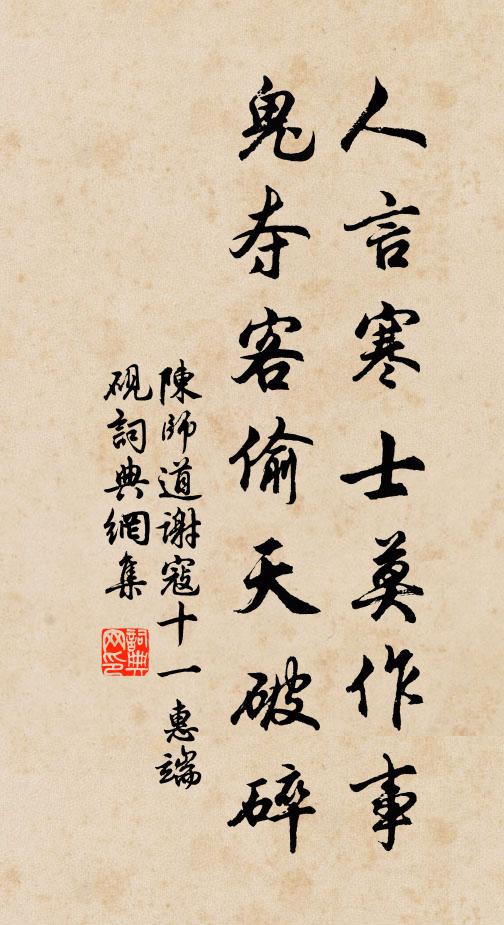 人言寒士莫作事
鬼夺客偷天破碎
陳師道謝寇十一惠端
硯詞典網集
詞典网印